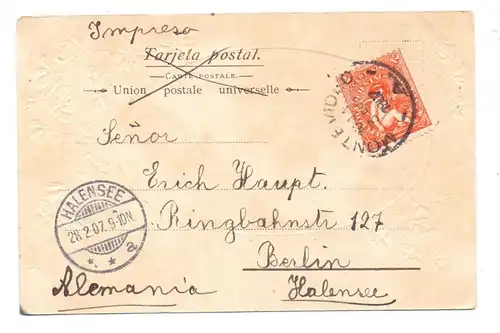 Impreso
Tarjeta postal.
CARTE POSTALE.
Union postale universelle
MONTEVIDEO
Señor
Erich Haupt.
Ringbahnstr 127
Berlin
Halensee
Alemania
HALENSEE
28.2.07. 9-10N.
* * a